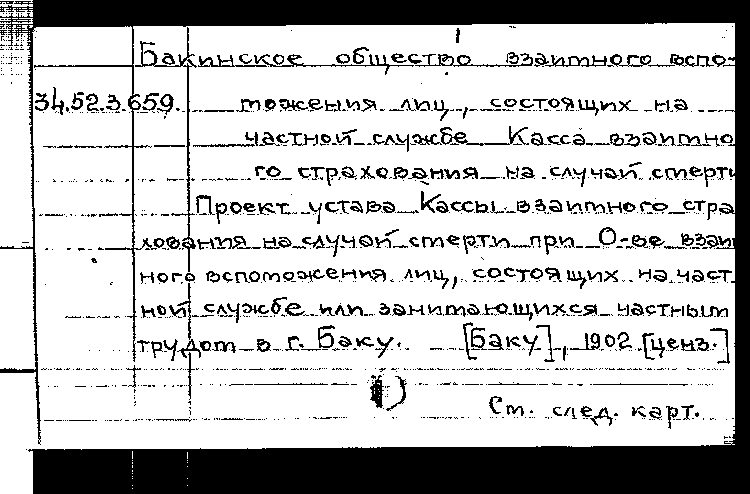 Бакинское общество взаимного вспо-
34.52.3.659. можения лиц, состоящих на
частной службе. Касса взаимно
го страхования на случай смерти
Проект устава Кассы взаимного стра
хования на случай смерти при О-ве взаим
ного вспоможения лиц, состоящих на част
ной службе или занимающихся частным
трудом в г. Баку. [Баку], 1902 [ценз.]
См. след. карт.